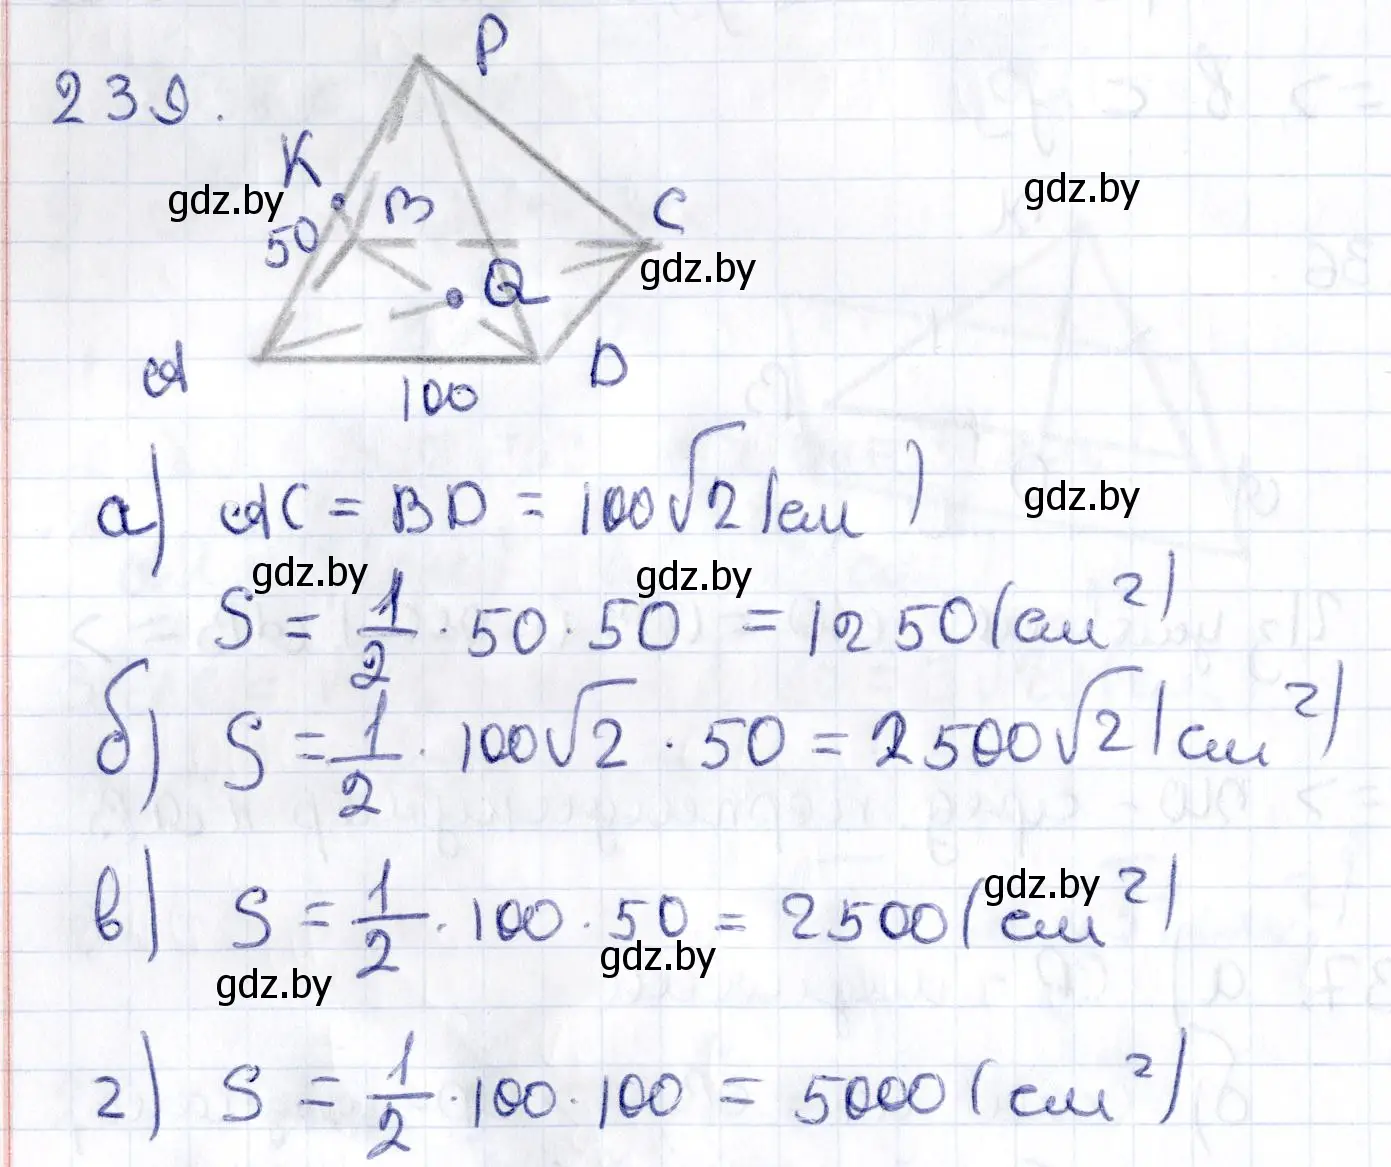 239.
P
K
gdz.by
gdz.by
B
C
50
gdz.by
Q
A
D
100
а) AC = BD = 100√2 (см)
gdz.by
gdz.by
gdz.by
S = 1/2 · 50 · 50 = 1250 (см²)
б) S = 1/2 · 100√2 · 50 = 2500√2 (см²)
gdz.by
в) S = 1/2 · 100 · 50 = 2500 (см²)
gdz.by
gdz.by
г) S = 1/2 · 100 · 100 = 5000 (см²)